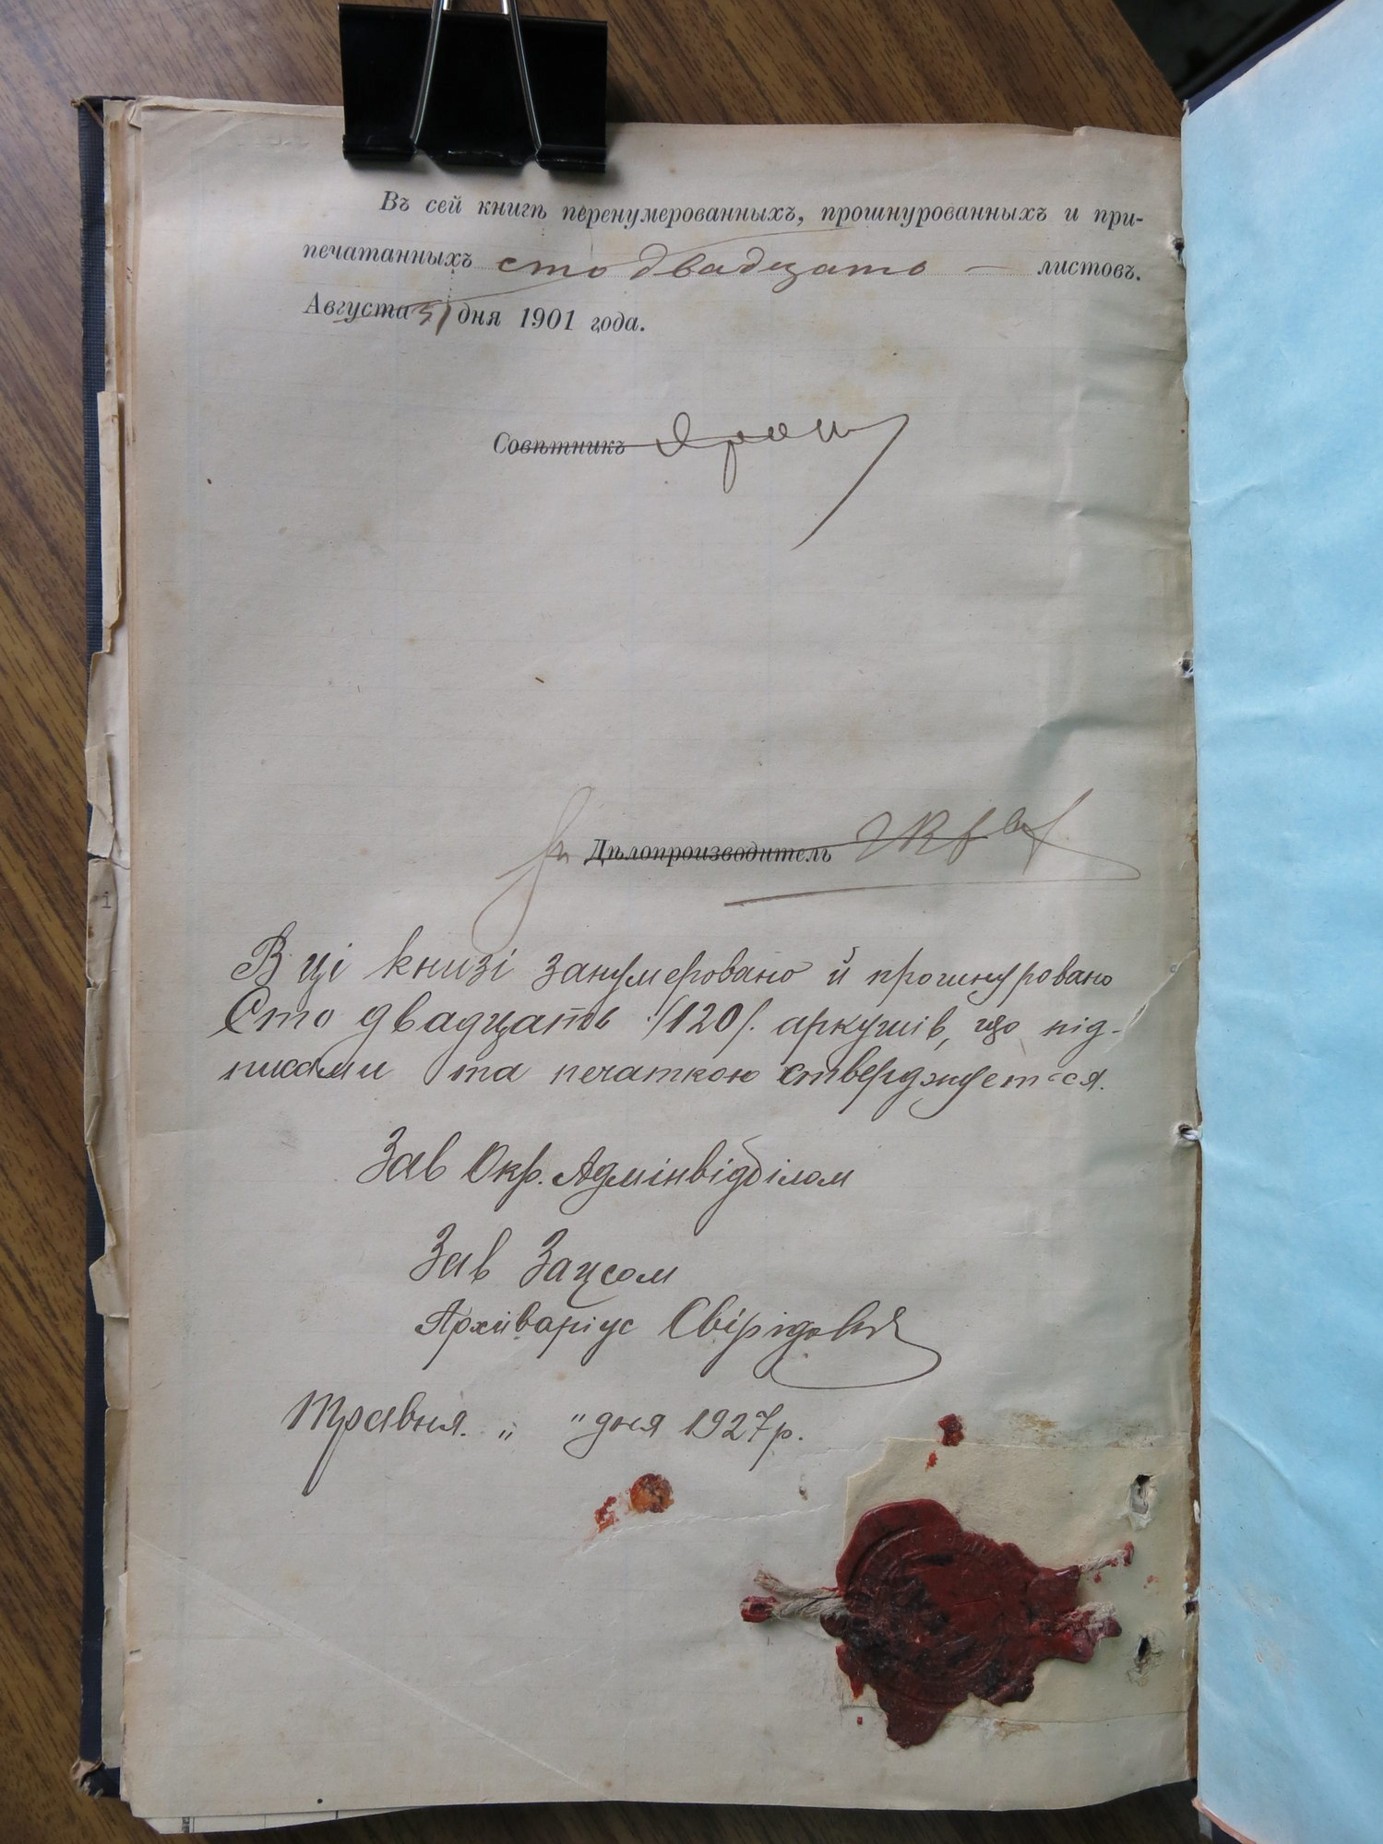 Въ сей книгѣ перенумерованныхъ, прошнурованныхъ и при-
печатанныхъ сто двадцать — листовъ.
Августа 31 дня 1901 года.
Совѣтникъ
За Дѣлопроизводитель
В ці книзі занумеровано й прошнуровано
Сто двадцать /120/. аркушів, що під-
писами та печаткою стверджується.
Зав Окр. Адмінвідділом
Зав Загсом
Архіваріус Свірідов
Травня „ " дня 1927 р.